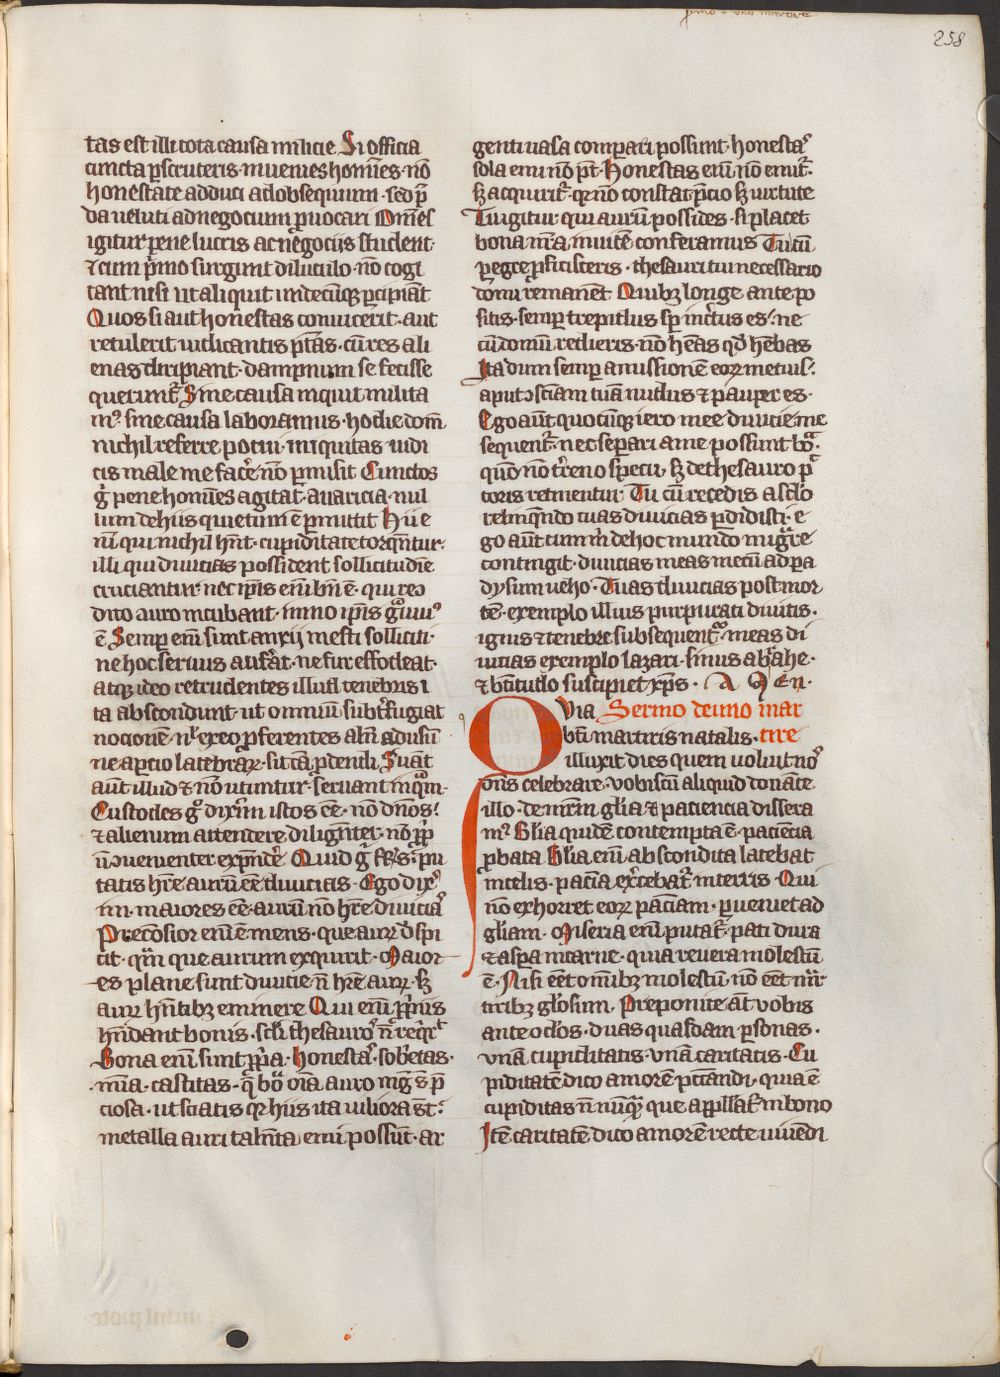 258
tas est illi tota causa milicie Si officia
cuncta ꝑscruteris· inuenies homīes· nō
honestate adduci ad obsequium· sed p̄
da ueluti ad negocium ꝓuocari Om̄es
igitur pene lucris ac negociis student·
⁊ cum p̄mo surgunt diluculo· nō cogi
tant nisi ut aliquit undecūqꝫ ꝑcipiāt
Quos si aut honestas conuicerit· aut
retulerit iudicantis ptās· cū res ali
enas diripiant· dampnum se fecisse
querunt᷑ Sine causa inquit milita
mꝰ· sine causa laboramus· hodie domū
nichil referre potui· iniquitas iudi
cis male me facēˀ nō ꝑmisit Cunctos
g̊ pene homines agitat auaricia· nul
lum de hiis quietum ē ꝑmittit Hii e
nī qui nichil hn̄t· cupiditate torquentur·
illi qui diuicias possident sollicitudīe
cruciantur· nec ip̄is enī bn̄ ē· qui reꝯ
dito auro incubant· immo ip̄is gͣuiꝰ
ē Semper enī sunt anxii mesti solliciti·
ne hoc seruus auferat· ne fur effodeat·
atqꝫ ideo retrudentes illud tenebris i
ta abscondunt· ut omnium subt᷑fugiat
nocionē·
ne aꝑtio latebraꝝ·
aūt illud ⁊ nō utuntur· seruant
Custodes g̊ dixerim istos eē· nō dn̄os!
⁊ alienum attendere diligēnter·
uenienter expendē Quid g̊ fr̄s·
tatis hr̄e aurū eē diuicias· Ego dixꝰ
im· maiores eē· aurū nō hr̄e diuiciaˢ
Preciosior enī ē mens· que auꝝ dispi
cit· qͣm que aurum exquirit· Maior
es plane sunt diuicie n̄ hr̄e auꝝ· sꝫ
auꝝ hn̄tibꝫ eminere Qui enī ꝓpriis
hundant bonis· sc̄li thesauroˢ n̄ reqͥrt᷑
Bona enī sunt ꝓpͥa· honestaˢ· sobrietas·
mīa· castitas· q̄ bōͣ oīa auro mgͥs p̄
ciosa· ut sciatis qꝛ hiis ita uiliora sūt·
metalla auri talenta emi possūt· ar
genti uasa comparari possunt· honestaˢ
sola emi nō pt̄· Honestas enī nō emit᷑·
sꝫ acquirit᷑· qꝛ nō constat p̄cio sꝫ uirtute
Tu igitur qui aurū possides· si placet
bona nr̄a inuicē conferamus Tu cū
ꝑegre ꝓficisceris· thesauri tui necessario
domi remanēt Quibꝫ longe ante po
sitis· semꝑ trepidus sp̄ inc̄tus es· ne
cū domū redieris· nō hēas qd̄ hēbas
Ita dum semꝑ amissionē eoꝝ metuis·
aput ꝯsciam tuā nudus ⁊ pauper es·
Ego aūt quo cūqꝫ iero mee diuicie me
sequent᷑· nec separi a me possunt bōͣ·
quō nō t᷑reno specu, sꝫ de thesauro pͣ
toris retinentur Tu cū recedis a sclō
relinqͦndo tuas diuicias ꝑdidisti· e
go aūt cum m̄ de hoc mundo migͣre
contingit· diuicias meas mecū ad pa
dysum ueho· Tuas diuicias post mor
tē· exemplo illius purpurati diuitis·
ignis ⁊ tenebre subsequent᷑· meas di
uicias exemplo lazari· sinus abͣahe·
⁊ btītudo suscipiet xp̄s· A M En·
Via Sermo de uno mar
bt̄i martiris natalis· tire
illuxit dies quem uoluit noˢ
dn̄s celebrare· uobiscū aliquid donāte
illo· de mr̄m glīa ⁊ paciencia dissera
mꝰ Glīa quidē contempta ē· paciēcia
ꝓbata Glīa enī abscondita latebat
in celis· paciā exˀcebat᷑ in terris· Qui
nō exhorret eoꝝ paciam· ꝑueniet ad
glīam· Miseria enī putat᷑· pati dura
⁊ aspa in carne· quia reuera molestū
ē· Nisi eēt om̄ibꝫ molestū· nō eēt mr̄
tiribꝫ gl̄osum· Preponite āt uobis
ante oclos· duas quasdam ꝑsonas·
unā cupiditatis· unā caritatis· Cu
piditatē dico amorē peccandi, quia ē
cupiditas n̄ nūqͣꝫ que appllat᷑ in bono
Itē caritatē dico amorē recte uiuēdi